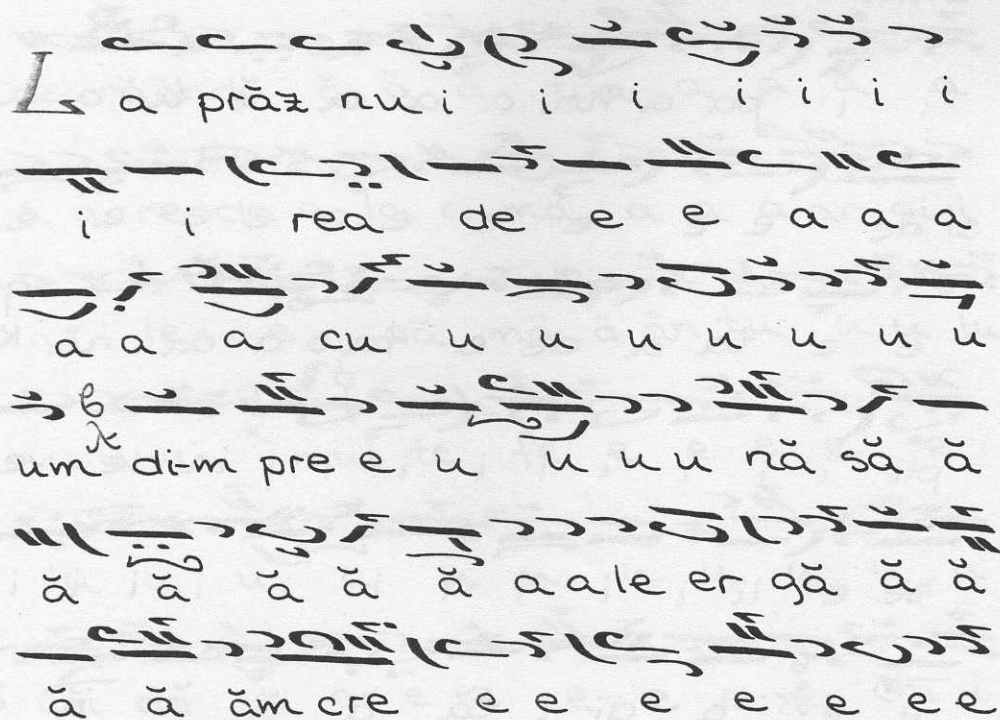 La prăz nu i i i i i i i
i i rea de e e a a a
a a a cu u u u u u u u
um di-m pre e u u u u nă să ă
ă ă ă ă ă a a le er gă ă ă
ă ă ăm cre e e e e e e e